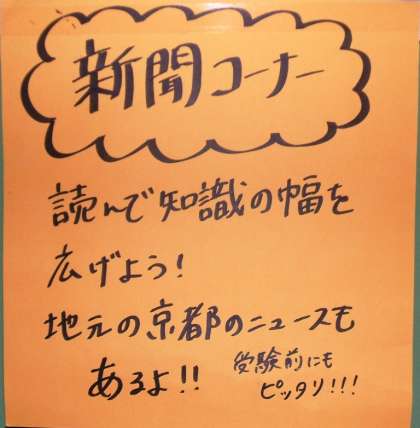 新聞コーナー
読んで知識の幅を
広げよう!
地元の京都のニュースも
あるよ!!
受験前にも
ピッタリ!!!